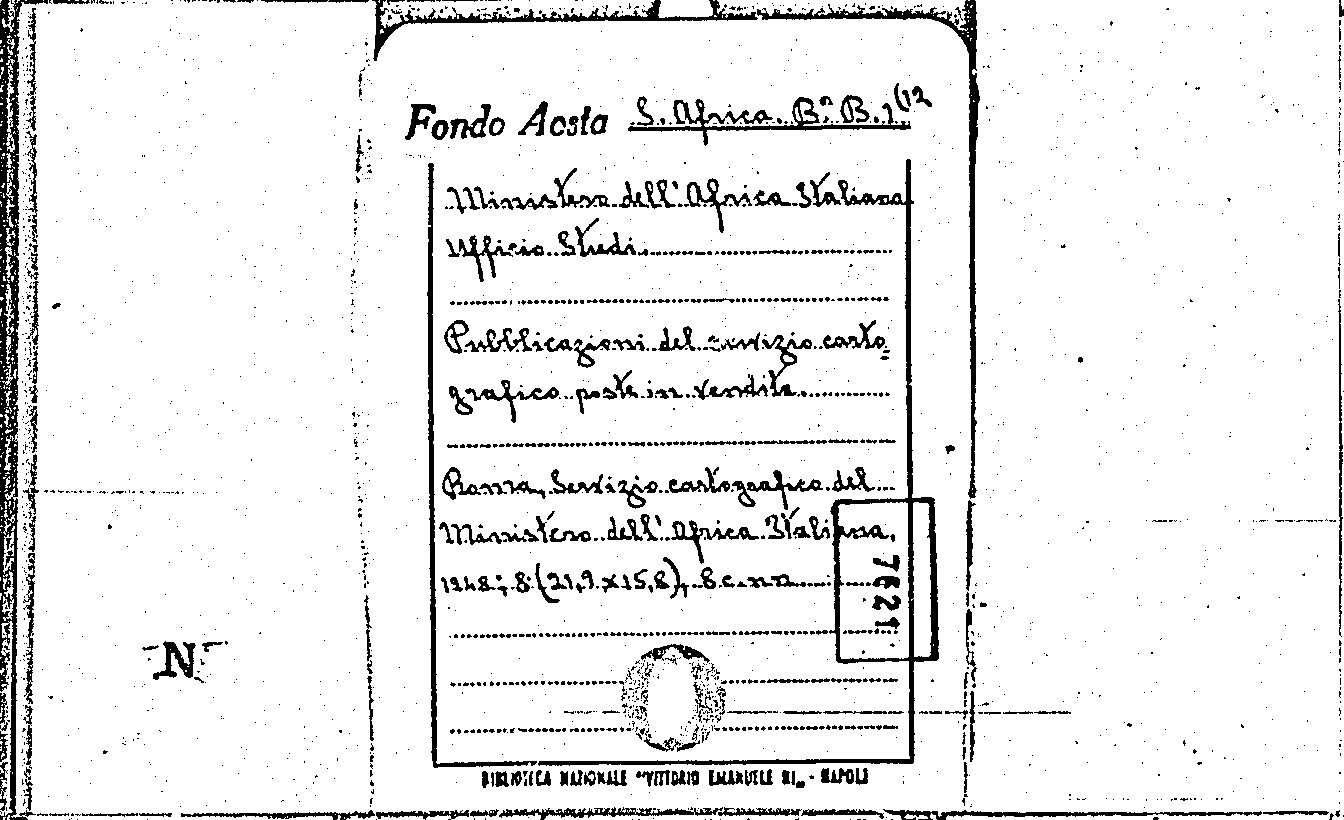 Fondo Aosta S. Africa. Bª B. 1(12
Ministero dell'Africa Italiana
Ufficio Studi.
Pubblicazioni del servizio carto=
grafico poste in vendita.
Roma, Servizio cartografico del
Ministero dell'Africa Italiana,
1948; 8° (21,9 x 15,8), 8 c.nn
7621
N
BIBLIOTECA NAZIONALE "VITTORIO EMANUELE III„ - NAPOLI